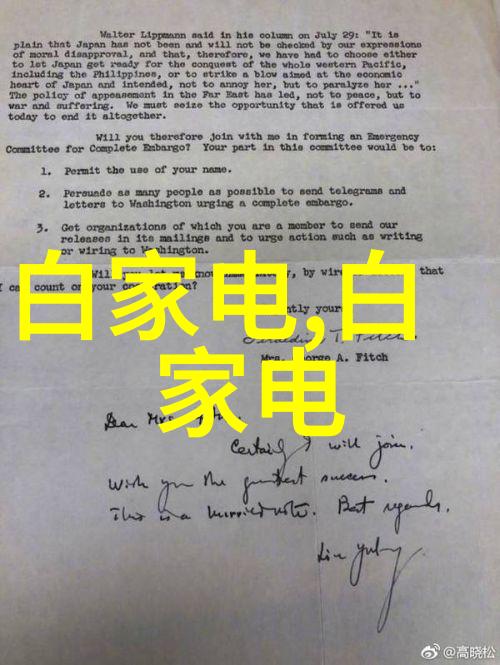 Walter Lippmann said in his column on July 29: "It is
plain that Japan has not been and will not be checked by our expressions
of moral disapproval, and that, therefore, we have had to choose either
to let Japan get ready for the conquest of the whole western Pacific,
including the Philippines, or to strike a blow aimed at the economic
heart of Japan and intended, not to annoy her, but to paralyze her ..."
The policy of appeasement in the Far East has led, not to peace, but to
war and suffering. We must seize the opportunity that is offered us
today to end it altogether.
Will you therefore join with me in forming an Emergency
Committee for Complete Embargo? Your part in this committee would be to:
1. Permit the use of your name.
2. Persuade as many people as possible to send telegrams and
letters to Washington urging a complete embargo.
3. Get organizations of which you are a member to send our
releases in its mailings and to urge action such as writing
or wiring to Washington.
Will you let me know by wire that
I can count on your
白家电,白
家电
Mrs. George A. Fitch
Dear Mrs.
Certainly I will join.
Wish you the greatest success.
This is a hurried note. Best regards.
Lin Yutang
@高晓松